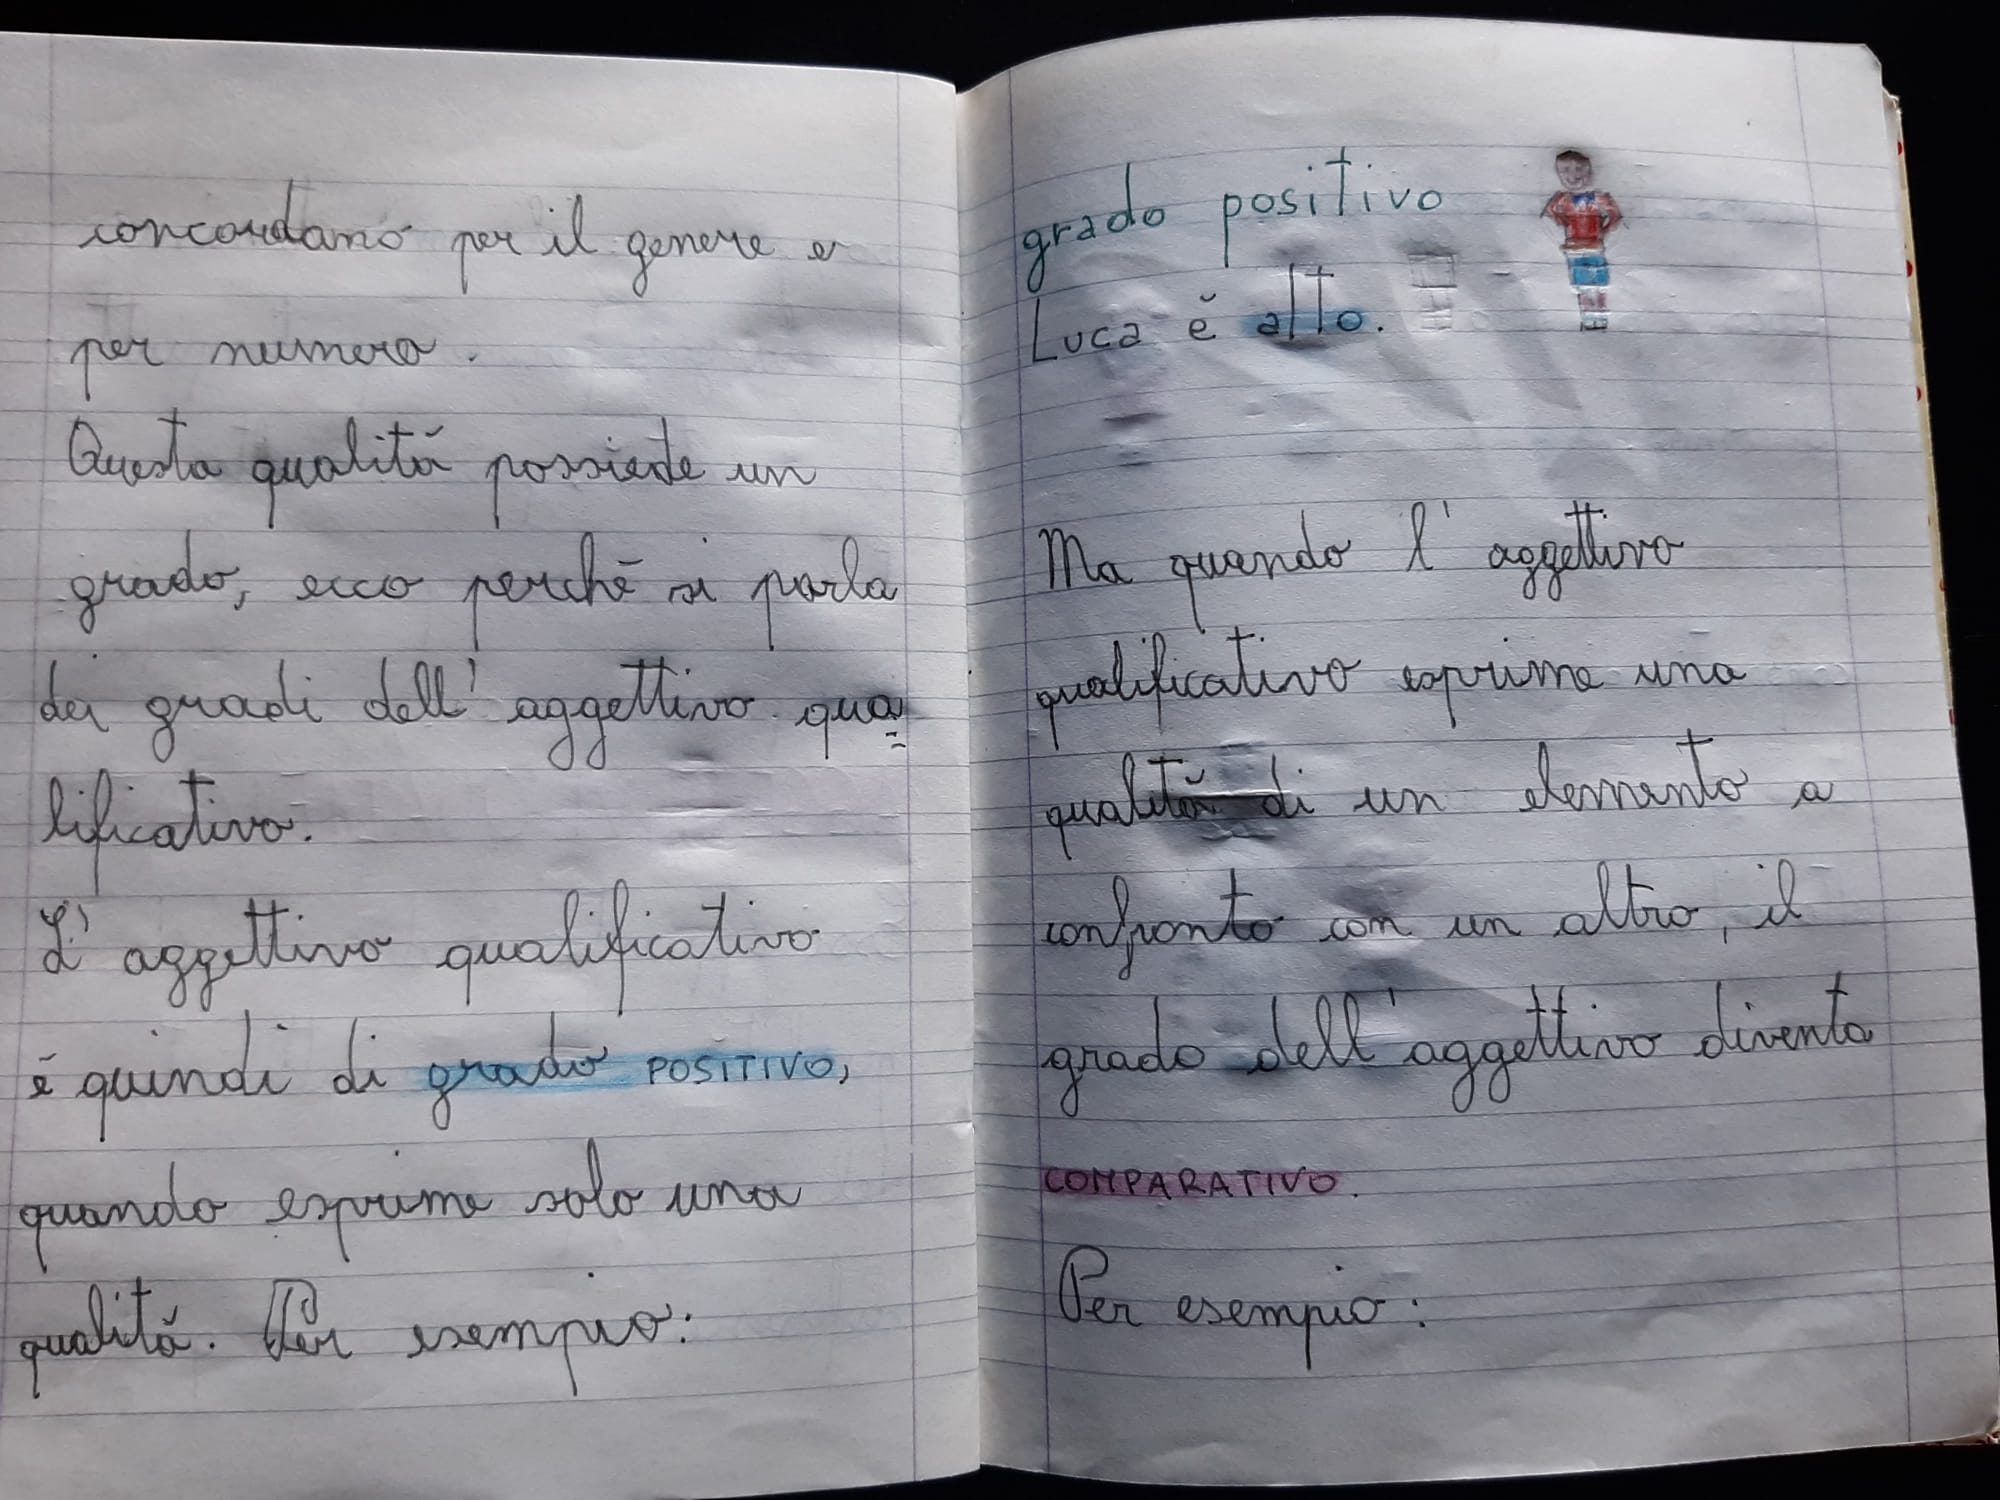 concordano per il genere e
per numero.
Questa qualità possiede un
grado, ecco perché si parla
dei gradi dell'aggettivo qua=
lificativo.
L'aggettivo qualificativo
è quindi di grado POSITIVO,
quando esprime solo una
qualità. Per esempio:
grado positivo
Luca è alto.
Ma quando l'aggettivo
qualificativo esprime una
qualità di un elemento a
confronto con un altro, il
grado dell'aggettivo diventa
COMPARATIVO.
Per esempio: